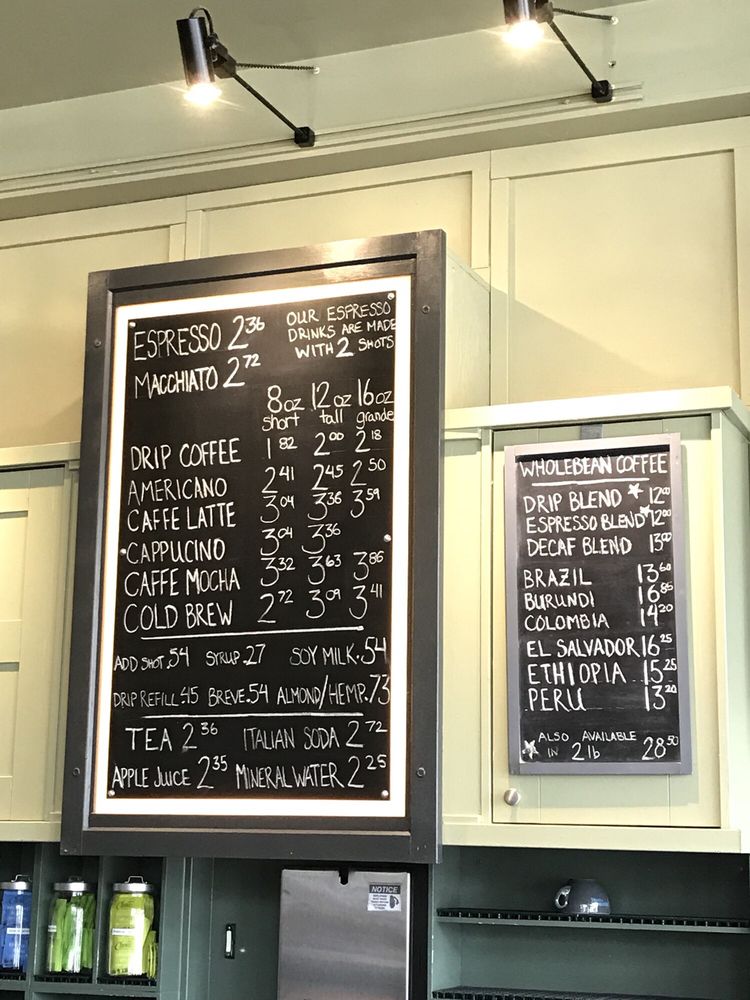 ESPRESSO 2.36
MACCHIATO 2.72
OUR ESPRESSO
DRINKS ARE MADE
WITH 2 SHOTS
8oz 12oz 16oz
short tall grande
DRIP COFFEE 1.82 2.00 2.18
AMERICANO 2.41 2.45 2.50
CAFFE LATTE 3.04 3.36 3.59
CAPPUCINO 3.04 3.36
CAFFE MOCHA 3.32 3.63 3.86
COLD BREW 2.72 3.09 3.41
ADD SHOT .54 SYRUP .27 SOY MILK .54
DRIP REFILL .45 BREVE .54 ALMOND/HEMP .73
TEA 2.36 ITALIAN SODA 2.72
APPLE JUICE 2.35 MINERAL WATER 2.25
WHOLEBEAN COFFEE
DRIP BLEND ☆ 12.00
ESPRESSO BLEND ☆ 12.00
DECAF BLEND 13.00
BRAZIL 13.60
BURUNDI 16.85
COLOMBIA 14.20
EL SALVADOR 16.25
ETHIOPIA 15.25
PERU 13.20
☆ ALSO AVAILABLE
IN 2 lb 28.50
NOTICE